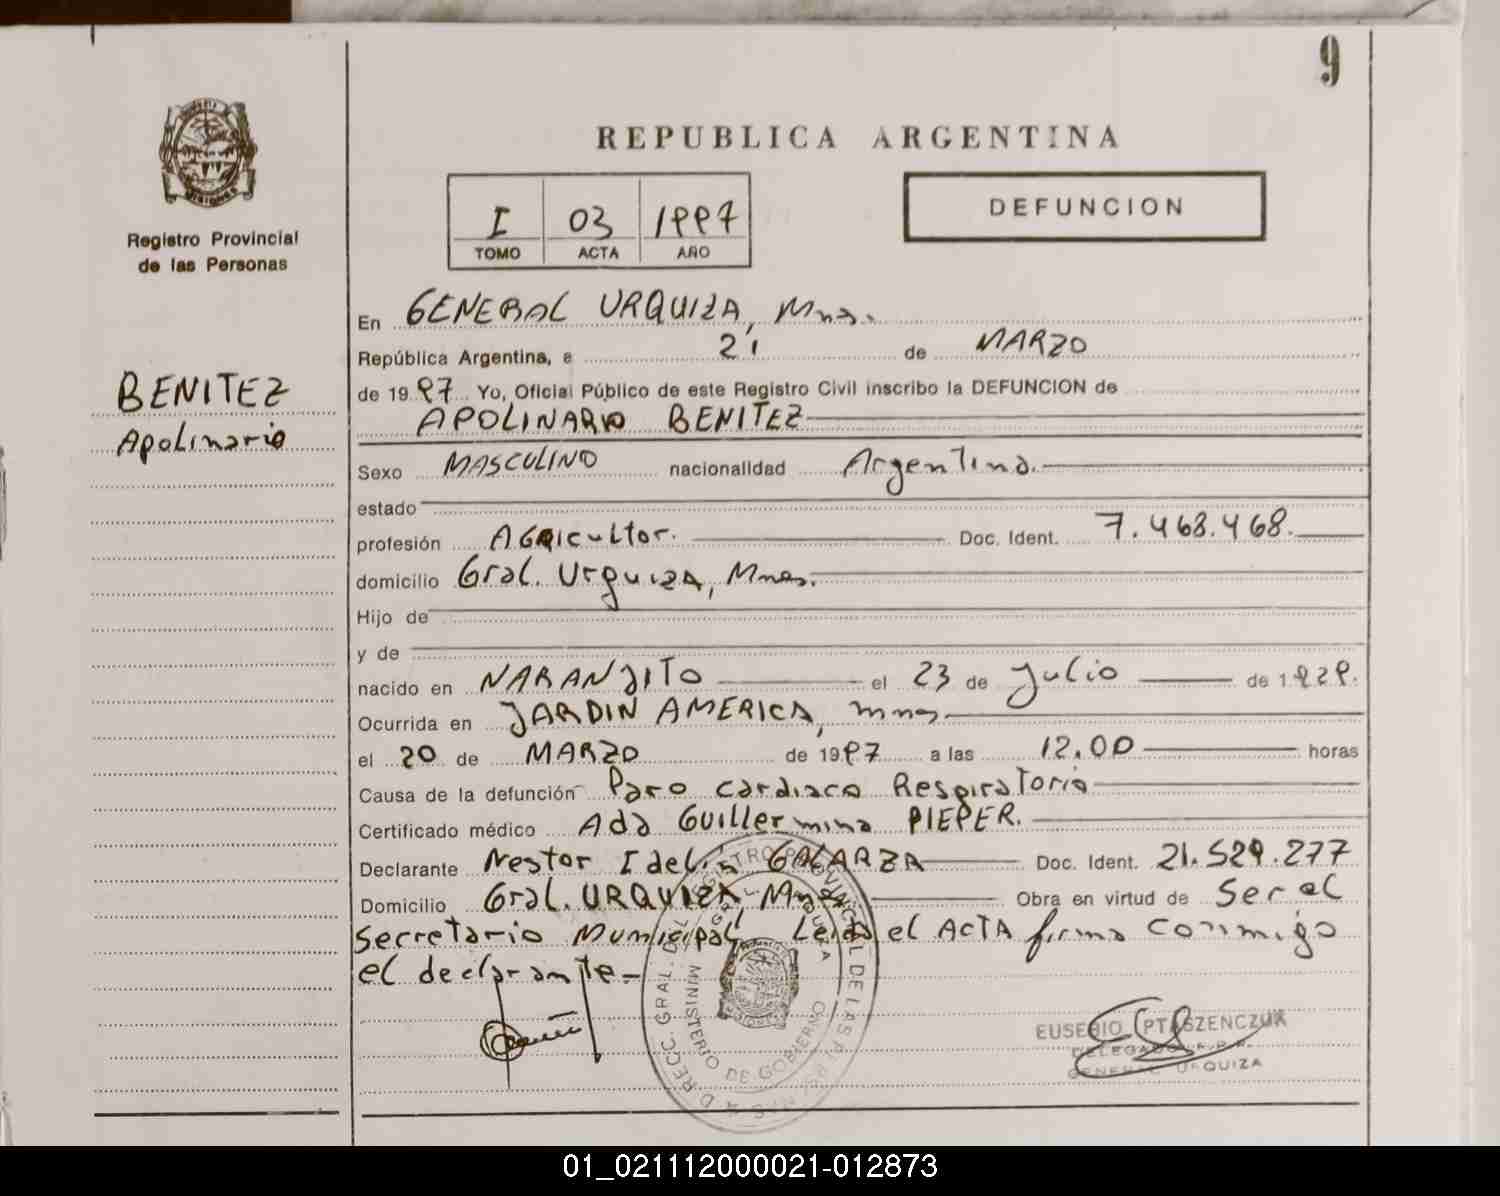 9
REPUBLICA ARGENTINA
Registro Provincial
de las Personas
I 03 1997
TOMO ACTA AÑO
DEFUNCION
BENITEZ
Apolinario
En GENERAL URQUIZA, Mnes.
República Argentina, a 21 de MARZO
de 1997 Yo, Oficial Público de este Registro Civil inscribo la DEFUNCION de
APOLINARIO BENITEZ
Sexo MASCULINO nacionalidad Argentina.
estado
profesión AGRICULTOR. Doc. Ident. 7.468.468.
domicilio Gral. Urquiza, Mnes.
Hijo de
y de
nacido en NARANJITO el 23 de Julio de 1929.
Ocurrida en JARDIN AMERICA, mnes
el 20 de MARZO de 1997 a las 12.00 horas
Causa de la defunción Paro cardiaco Respiratorio
Certificado médico Ada Guillermina PIEPER.
Declarante Nestor Idelís GALARZA Doc. Ident. 21.529.277
Domicilio Gral. URQUIZA, Mnes Obra en virtud de Ser el
Secretario Municipal Leida el ACTA firma conmigo
el declarante.-
MINISTERIO DE GOBIERNO
EUSEBIO PTASZENCZUK
DELEGADO R.P.P.
GENERAL URQUIZA
01_021112000021-012873